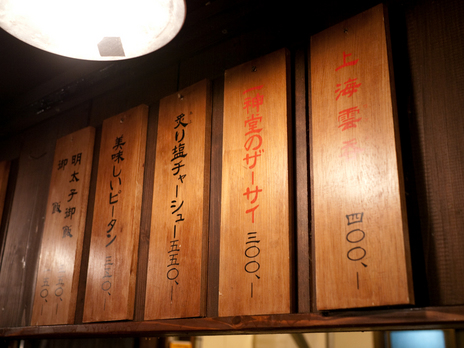 上海雲呑 四〇〇、―
神堂のザーサイ 三〇〇、―
炙り塩チャーシュー 五五〇、―
美味しいピータン
明太子御飯
御飯